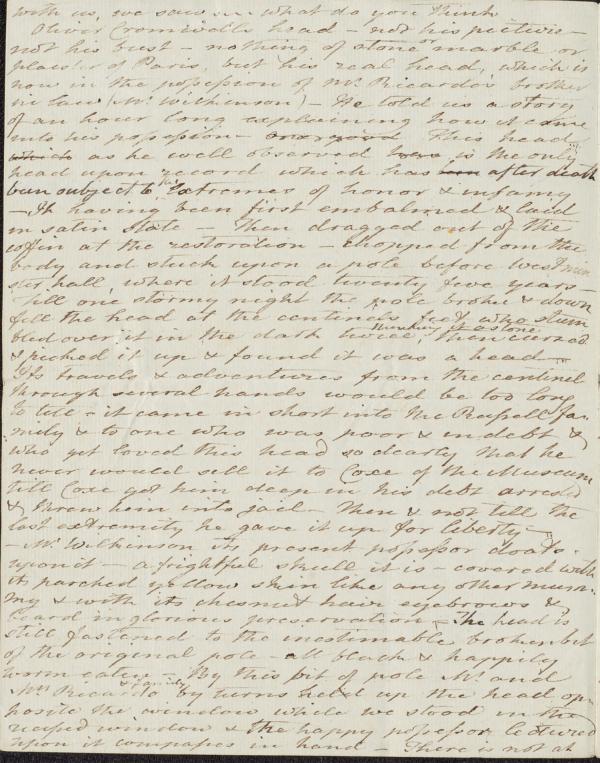 with us, we saw — what do you think
Oliver Cromwells head — not his picture —
not his bust — nothing of stone or marble or
plaister of Paris, but his real head, which is
now in the possession of Mr Ricardo's brother
in law (Mr Wilkinson) — He told us a story
of an hour long explaining how it came
into his possession — This head
which as he well observed is the only
head upon record which has after death
been subject to the extremes of honor & infamy
— It having been first embalmed & laid
in satin state — Then dragged out of the
coffin at the restoration — chopped from the
body and stuck upon a pole before Westmin
ster hall, where it stood twenty five years —
Till one stormy night the pole broke & down
fell the head at the centinels feet who stum
bled over it in the dark twice thinking it a stone then cursed
& picked it up & found it was a head —
Its travels & adventures from the centinel
through several hands would be too long
to tell — it came in short into the Russell fa-
mily & to one who was poor & in debt &
who yet loved this head so dearly that he
never would sell it to Coxe of the Museum
till Coxe got him deep in his debt arrested
& threw him into jail — Then & not till the
last extremity he gave it up for liberty —
— Mr Wilkinson its present possessor doats
upon it — a frightful skull it is — covered with
its parched yellow skin like any other mum
my & with its chesnut hair eyebrows &
beard in glorious preservation — The head is
still fastened to the inestimable broken bit
of the original pole — all black & happily
worm eaten — By this bit of pole Mr and
Mrs Ricardo & family by turns held up the head op-
posite the window while we stood in the
recessed window & the happy possessor lectured
upon it compasses in hand — There is not at